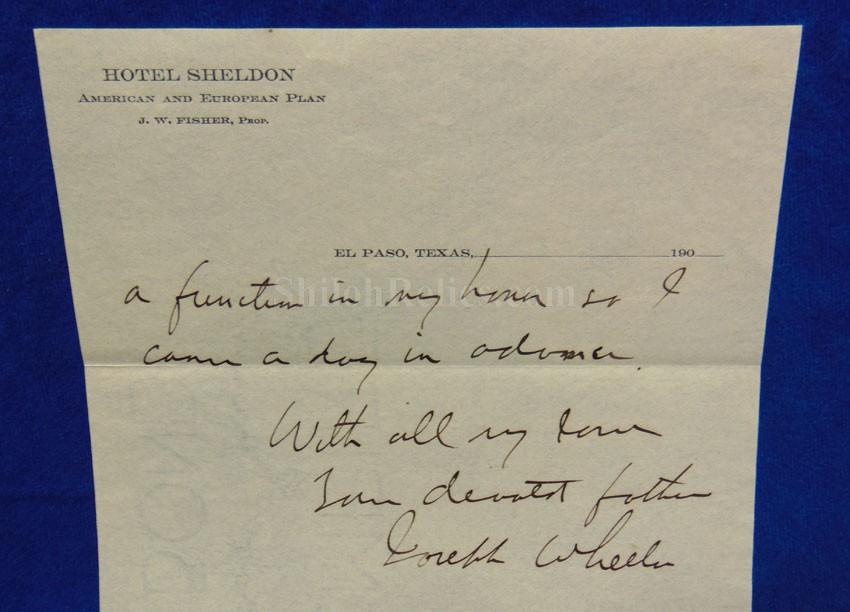 HOTEL SHELDON
AMERICAN AND EUROPEAN PLAN
J. W. FISHER, PROP.
EL PASO, TEXAS, 190
ShilohRelics.com
a function in my honor so I
came a day in advance.
With all my love
Your devoted father
Joseph Wheeler